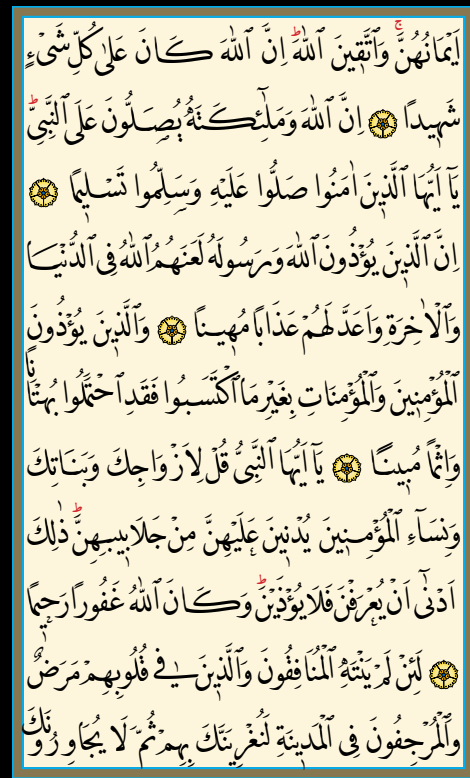 اَيْمَانُهُنَّۚ وَاتَّق۪ينَ اللّٰهَؕ اِنَّ اللّٰهَ كَانَ عَلٰى كُلِّ شَىْءٍ
شَه۪يداً ۞ اِنَّ اللّٰهَ وَمَلٰٓئِكَتَهُ يُصَلُّونَ عَلَى النَّبِىِّؕ
يَٓا اَيُّهَا الَّذ۪ينَ اٰمَنُوا صَلُّوا عَلَيْهِ وَسَلِّمُوا تَسْل۪يماً ۞
اِنَّ الَّذ۪ينَ يُؤْذُونَ اللّٰهَ وَرَسُولَهُ لَعَنَهُمُ اللّٰهُ فِى الدُّنْيَا
وَالْاٰخِرَةِ وَاَعَدَّ لَهُمْ عَذَاباً مُه۪يناً ۞ وَالَّذ۪ينَ يُؤْذُونَ
الْمُؤْمِن۪ينَ وَالْمُؤْمِنَاتِ بِغَيْرِ مَا اكْتَسَبُوا فَقَدِ احْتَمَلُوا بُهْتَاناً
وَاِثْماً مُب۪يناً ۞ يَٓا اَيُّهَا النَّبِىُّ قُلْ لِاَزْوَاجِكَ وَبَنَاتِكَ
وَنِسَٓاءِ الْمُؤْمِن۪ينَ يُدْن۪ينَ عَلَيْهِنَّ مِنْ جَلَاب۪يبِهِنَّؕ ذٰلِكَ
اَدْنٰٓى اَنْ يُعْرَفْنَ فَلَا يُؤْذَيْنَؕ وَكَانَ اللّٰهُ غَفُوراً رَح۪يماً
۞ لَئِنْ لَمْ يَنْتَهِ الْمُنَافِقُونَ وَالَّذ۪ينَ ف۪ى قُلُوبِهِمْ مَرَضٌ
وَالْمُرْجِفُونَ فِى الْمَد۪ينَةِ لَنُغْرِيَنَّكَ بِهِمْ ثُمَّ لَا يُجَاوِرُونَكَ